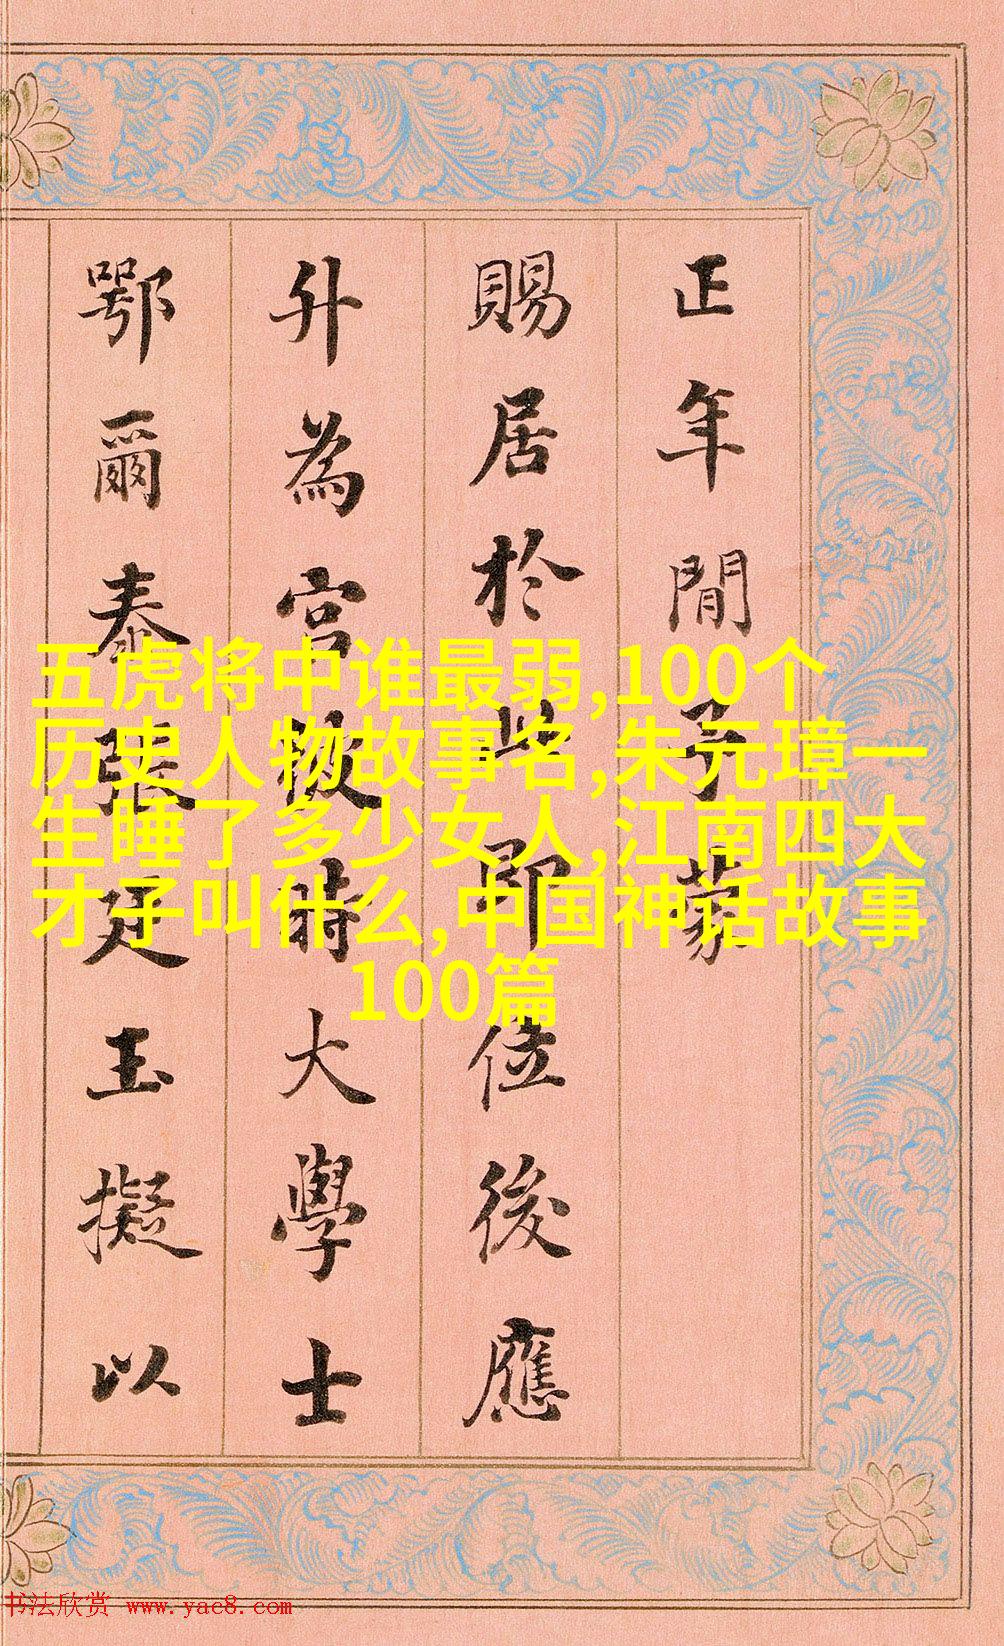 正年間予蒙
賜居於此即位後應
升為宮敬時大學士
鄂爾泰張廷玉擬以
五虎将中谁最弱,100个
历史人物故事名,朱元璋一
生睡了多少女人,江南四大
才子叫什么,中国神话故事
100篇
书法欣赏 www.yac8.com